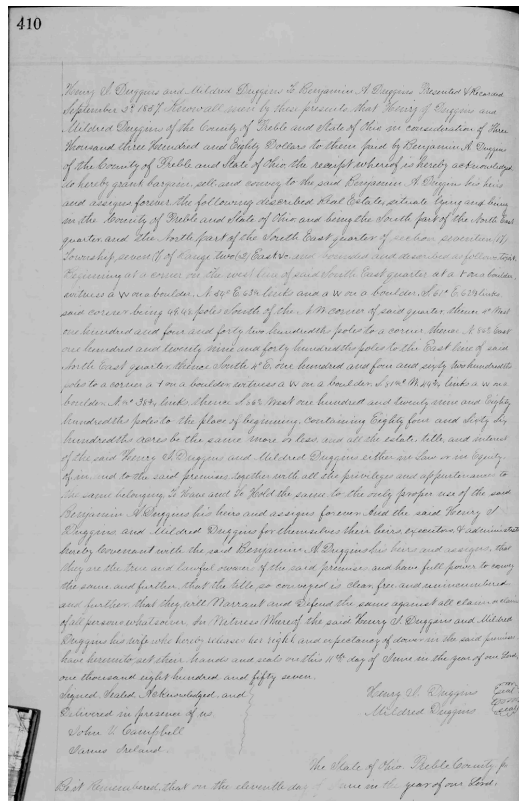 410
Henry S. Duggins and Mildred Duggins To Benjamin A Duggins Presented & Recorded
September 1857 Know all men by these presents that Henry S Duggins and
Mildred Duggins of the County of Preble and State of Ohio in consideration of Three
Thousand three Hundred and Eighty Dollars to them paid by Benjamin A. Duggins
of the County of Preble and State of Ohio, the receipt whereof is hereby acknowledged
do hereby grant bargain, sell, and convey to the said Benjamin A. Duggins his heirs
and assigns forever the following described Real Estate, situate lying and being
in the County of Preble and State of Ohio and being the South part of the North East
quarter and the North part of the South East quarter of section seventeen (17)
Township seven (7) of range two (2) East and bounded and described as follows
Beginning at a corner on the west line of said South East quarter at a + on a boulder,
witness a W on a boulder. N E links and a W on a boulder. S E links
said corner being poles South of the N W corner of said quarter, thence West
one hundred and four and forty two hundredths poles to a corner thence N East
one hundred and twenty nine and forty hundredths poles to the East line of said
North East quarter, thence South E one hundred and four and sixty two hundredths
poles to a corner a + on a boulder, witness a W on a boulder. S W links a W on a
boulder. N links, thence S West one hundred and twenty nine and Eighty
hundredths poles to the place of beginning. Containing Eighty four and sixty six
hundredths acres be the same more or less, and all the estate, title, and interest
of the said Henry S. Duggins and Mildred Duggins either in Law or in Equity
of, in, and to the said premises, together with all the privileges and appurtenances to
the same belonging To Have and To Hold the same to the only proper use of the said
Benjamin A Duggins his heirs and assigns forever And the said Henry S
Duggins and Mildred Duggins for themselves their heirs executors, & administrators
hereby Covenant with the said Benjamin A Duggins his heirs and assigns, that
they are the true and lawful owners of the said premises and have full power to convey
the same, and further, that the title, so conveyed is clear, free, and unincumbered
and further that they will Warrant and Defend the same against all claim or claims
of all persons whatsoever. In Witness Whereof the said Henry S. Duggins and Mildred
Duggins his wife who hereby releases her right and expectancy of dower in the said premises
have hereunto set their hands and seals on this 11th day of June in the year of our Lord,
one thousand eight hundred and fifty seven.
Signed, Sealed Acknowledged, and
Delivered in presence of us.
John V. Campbell
James Ireland
Henry S. Duggins seal
Mildred Duggins seal
The State of Ohio Preble County
Be it Remembered, that on the eleventh day of June in the year of our Lord,